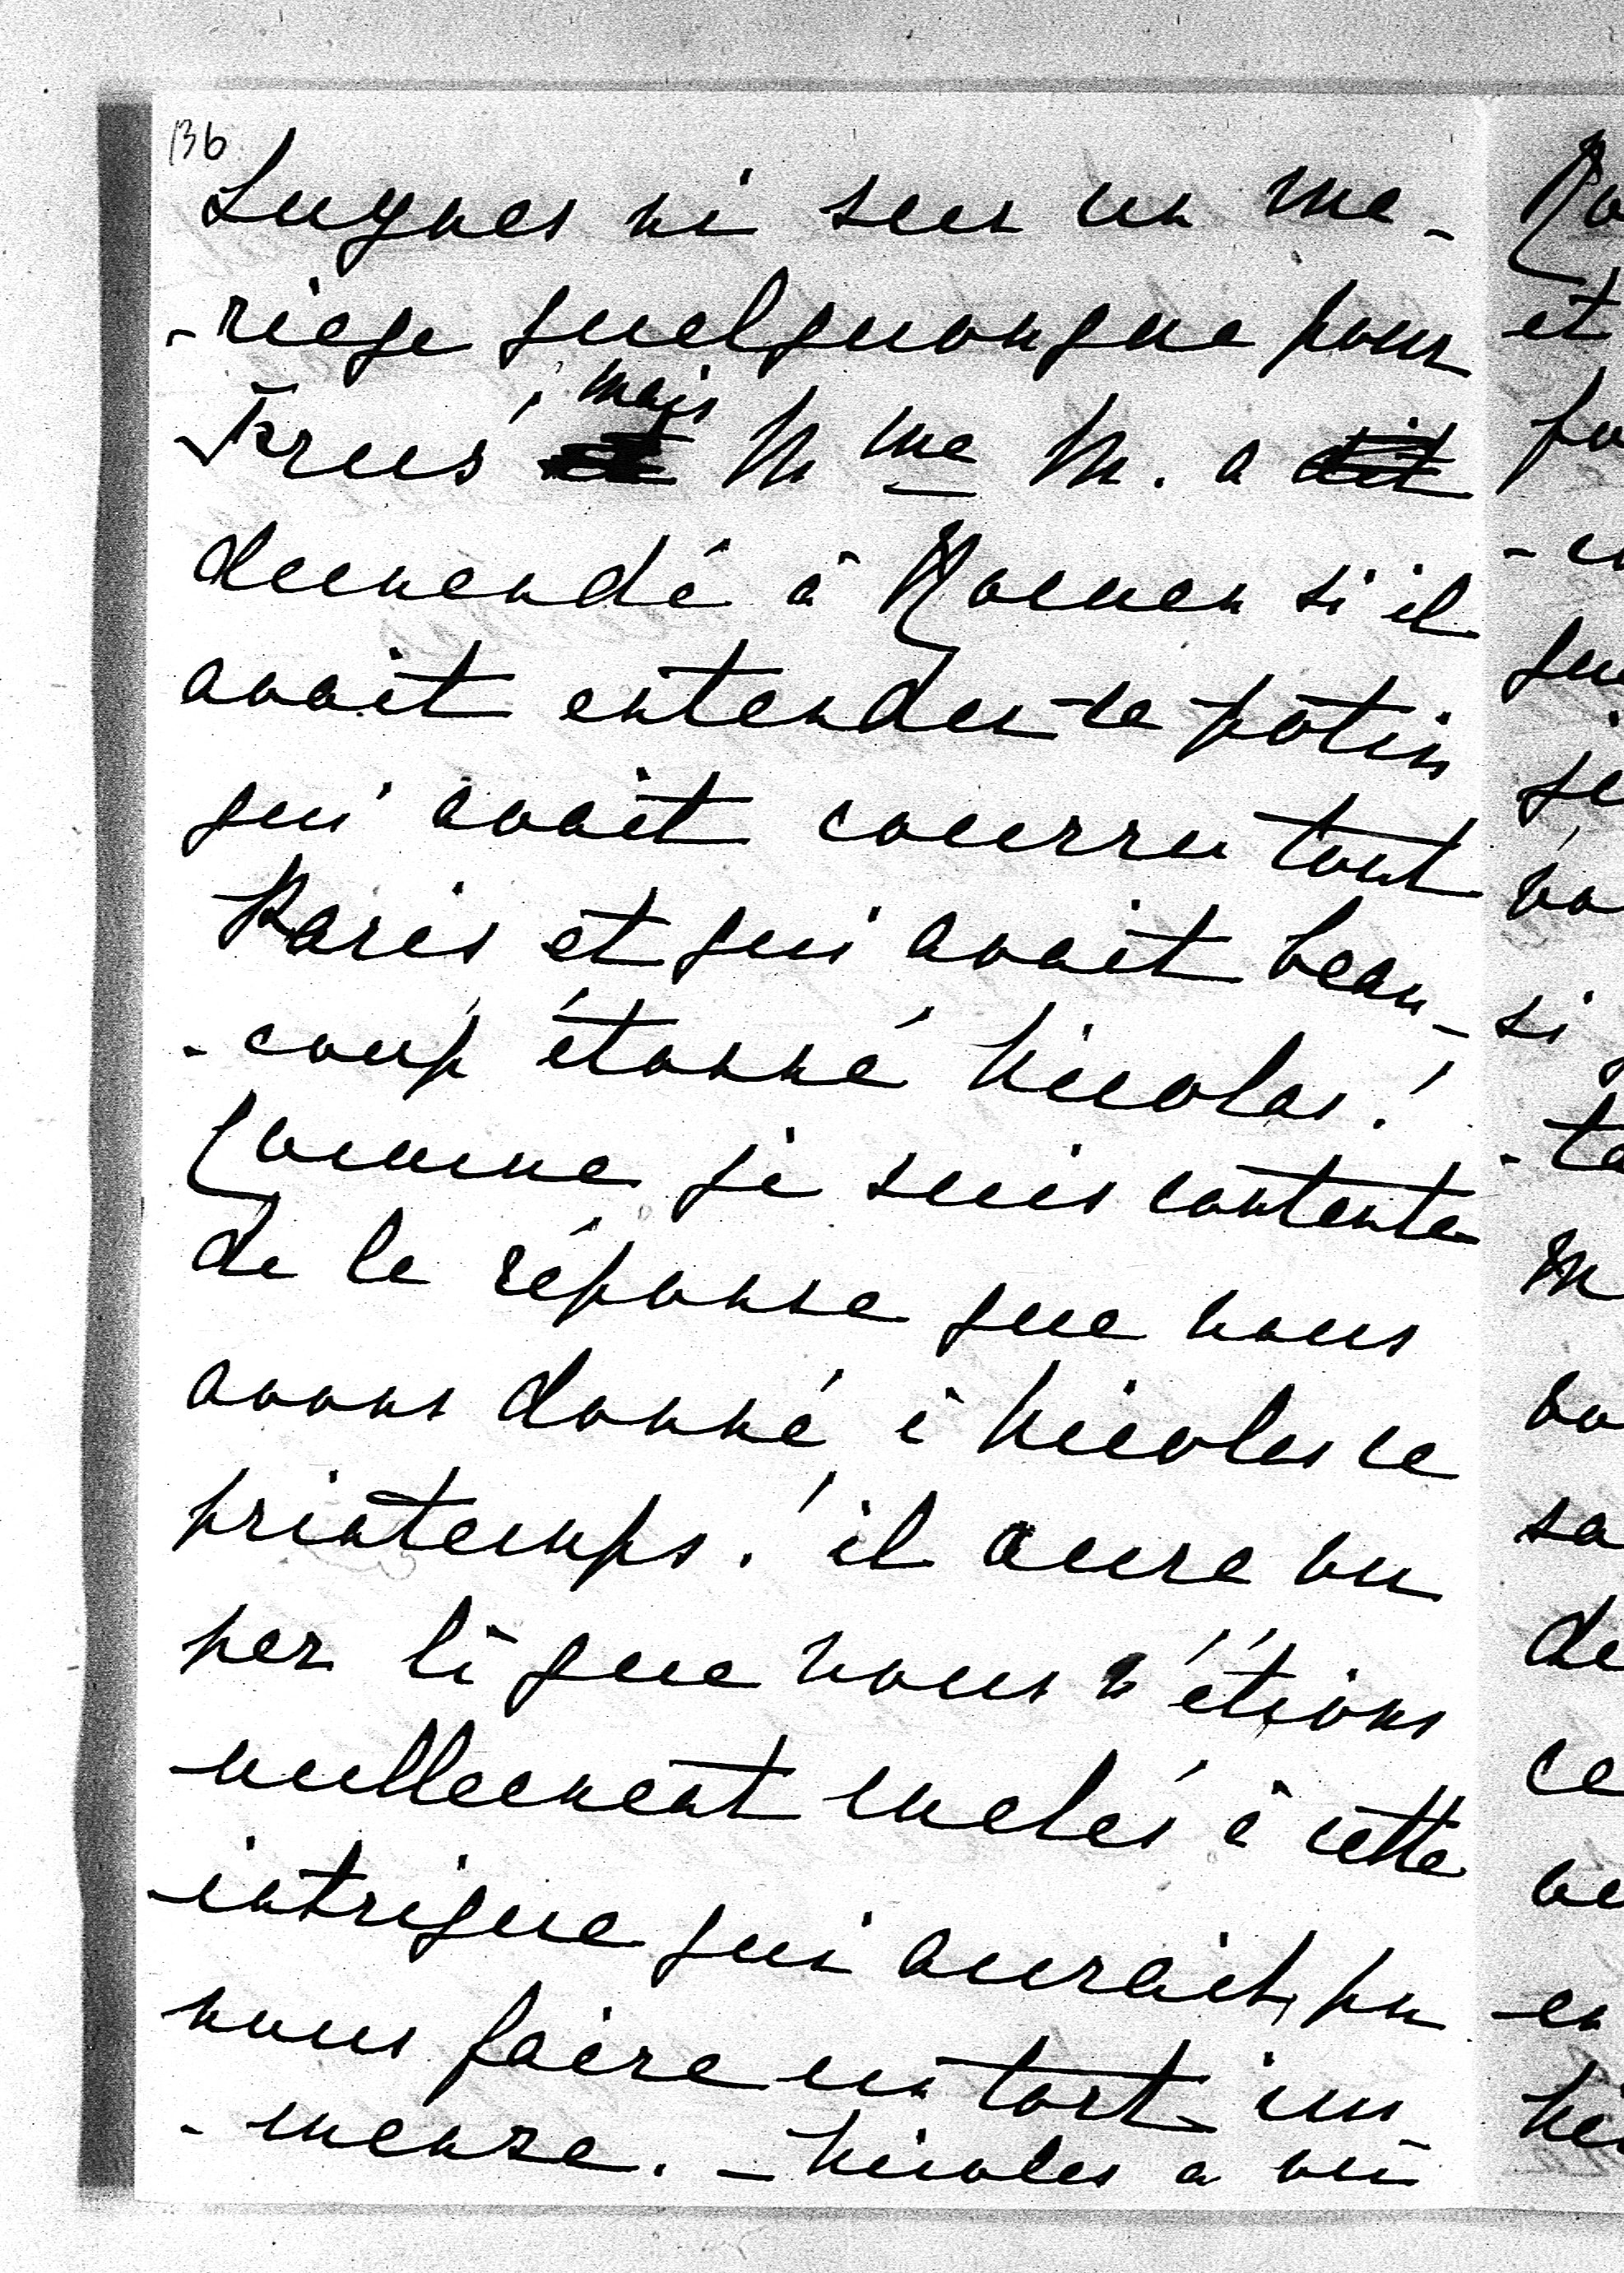 136
Luynes ni sur un ma-
-riage quelquonque pour
mais
Krus M me M. a dit
demandé à Roman si il
avait entendu le potin
qui avait courru tout
Paris et qui avait beau-
-coup étonné Nicolas!
Comme je suis contente
de la réponse que nous
avons donné à Nicolas ce
printemps! il aura vu
par là que nous n'étions
nullement melés à cette
intrigue qui aurait pu
nous faire un tort im
-mense. - Nicolas a vu